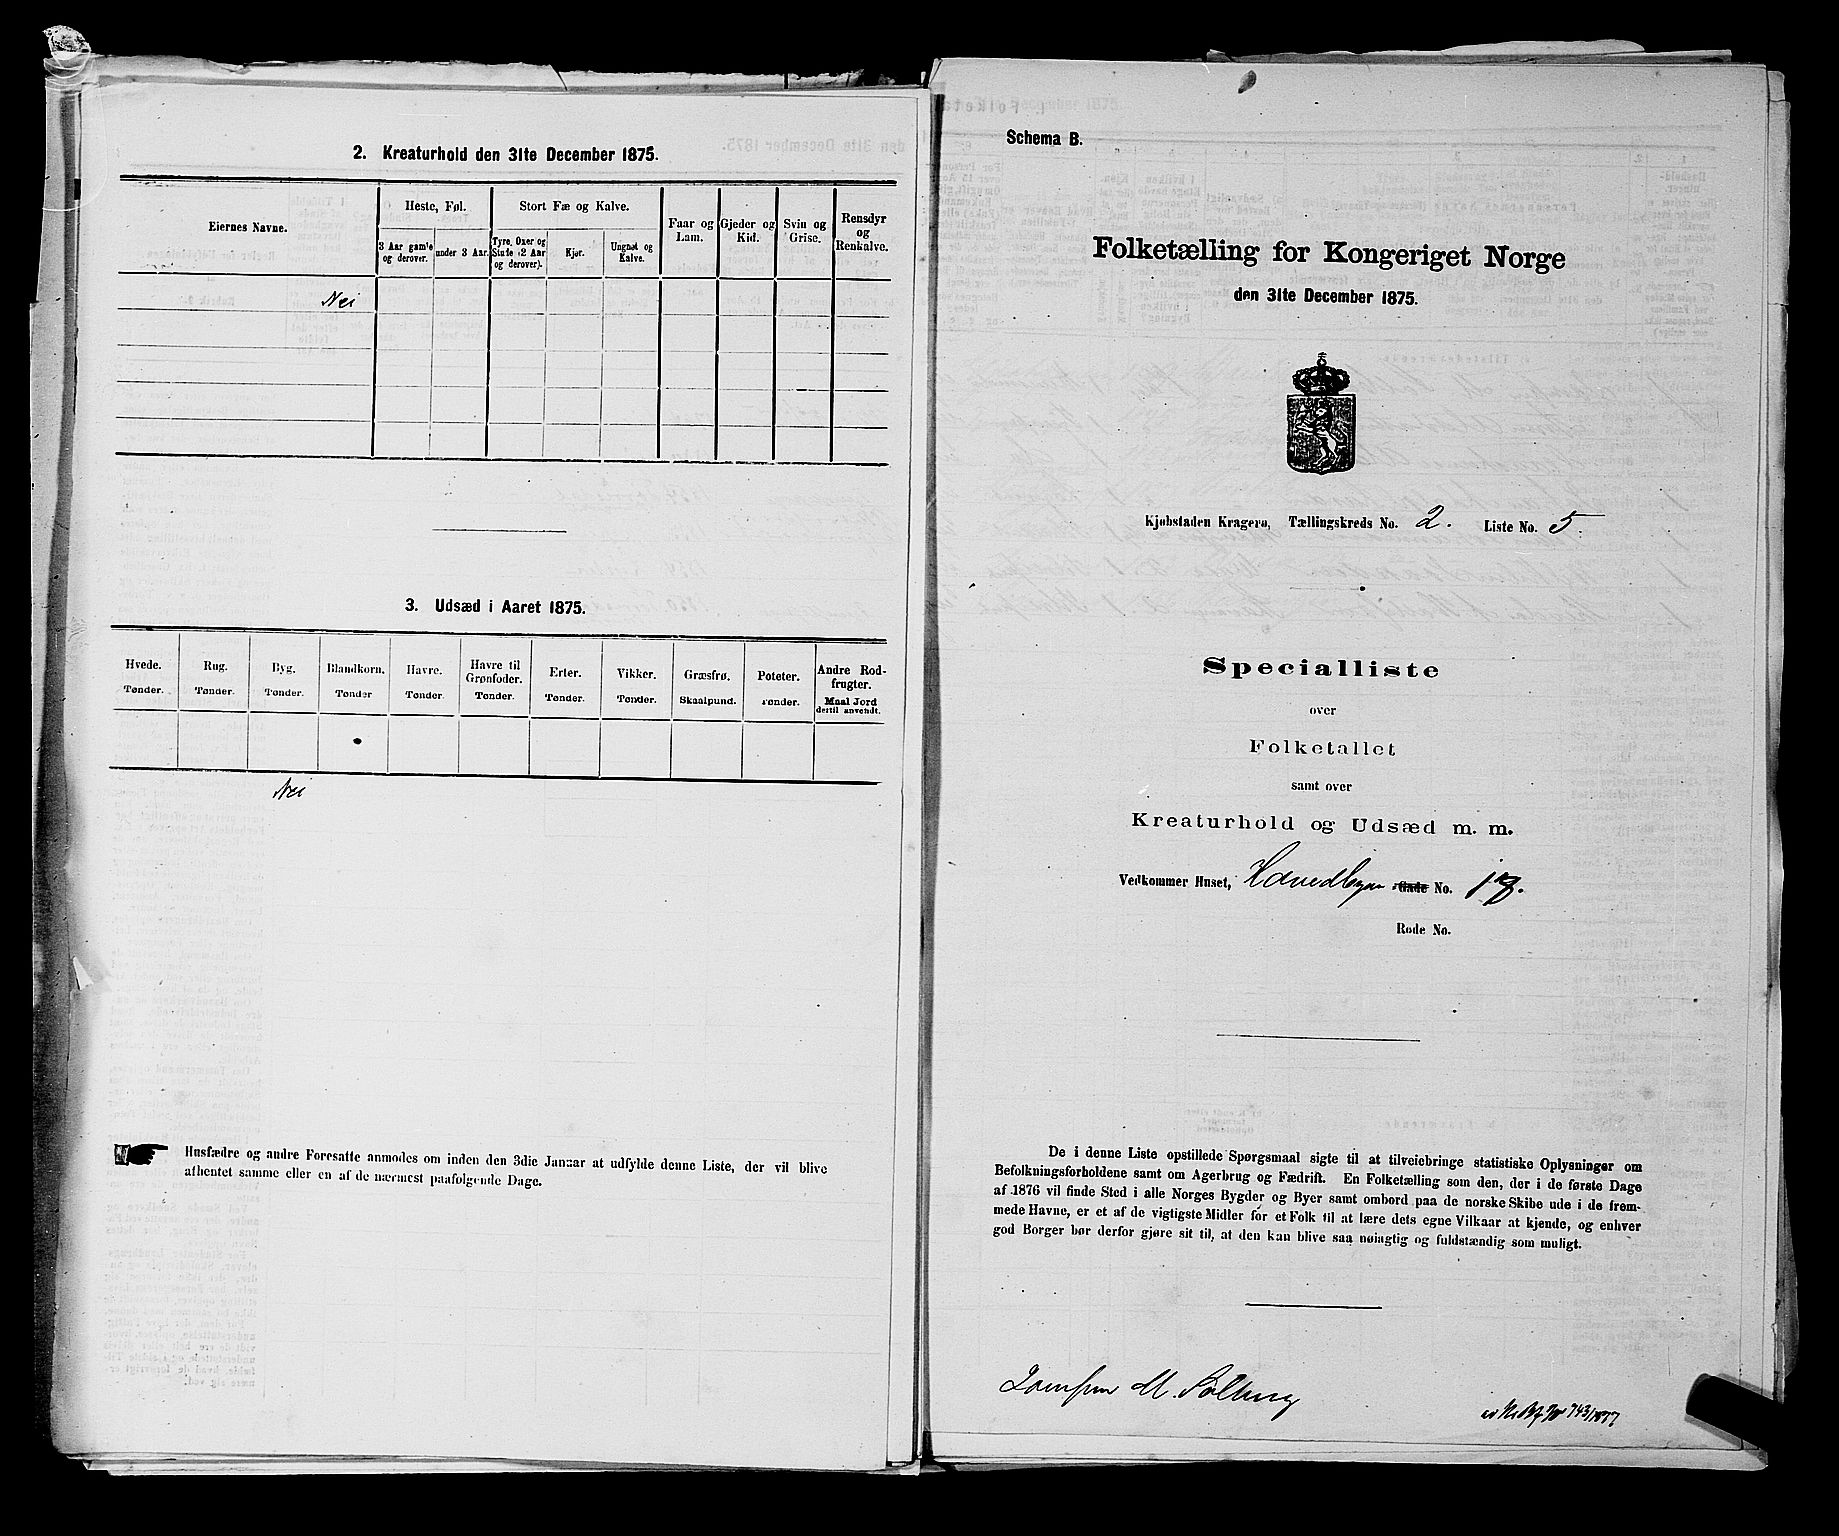 2. Kreaturhold den 31te December 1875.
Eiernes Navne.
Heste, Føl.
Stort Fæ og Kalve.
Faar og Lam.
Gjeder og Kid.
Svin og Grise.
Rensdyr og Renkalve.
3 Aar gamle og derover.
under 3 Aar.
Tyre, Oxer og Stude (2 Aar og derover).
Kjør.
Ungnøt og Kalve.
Nei
3. Udsæd i Aaret 1875.
Hvede. Rug. Byg. Blandkorn. Havre. Havre til Grønfoder. Erter. Vikker. Græsfrø. Poteter. Andre Rodfrugter.
Tønder. Tønder. Tønder. Tønder Tønder. Tønder. Tønder. Tønder. Skaalpund. Tønder. Maal Jord dertil anvendt.
Nei
Husfædre og andre Foresatte anmodes om inden den 3die Januar at udfylde denne Liste, der vil blive
afhentet samme eller en af de nærmest paafølgende Dage.
Schema B.
Folketælling for Kongeriget Norge
den 31te December 1875.
Kjøbstaden Kragerø, Tællingskreds No. 2. Liste No. 5.
Specialliste
over
Folketallet
samt over
Kreaturhold og Udsæd m. m.
Vedkommer Huset, Gade No.
Rode No.
De i denne Liste opstillede Spørgsmaal sigte til at tilveiebringe statistiske Oplysninger om
Befolkningsforholdene samt om Agerbrug og Fædrift. En Folketælling som den, der i de første Dage
af 1876 vil finde Sted i alle Norges Bygder og Byer samt ombord paa de norske Skibe ude i de frem-
mede Havne, er et af de vigtigste Midler for et Folk til at lære dets egne Vilkaar at kjende, og enhver
god Borger bør derfor gjøre sit til, at den kan blive saa nøiagtig og fuldstændig som muligt.
M. Solberg
743/1877